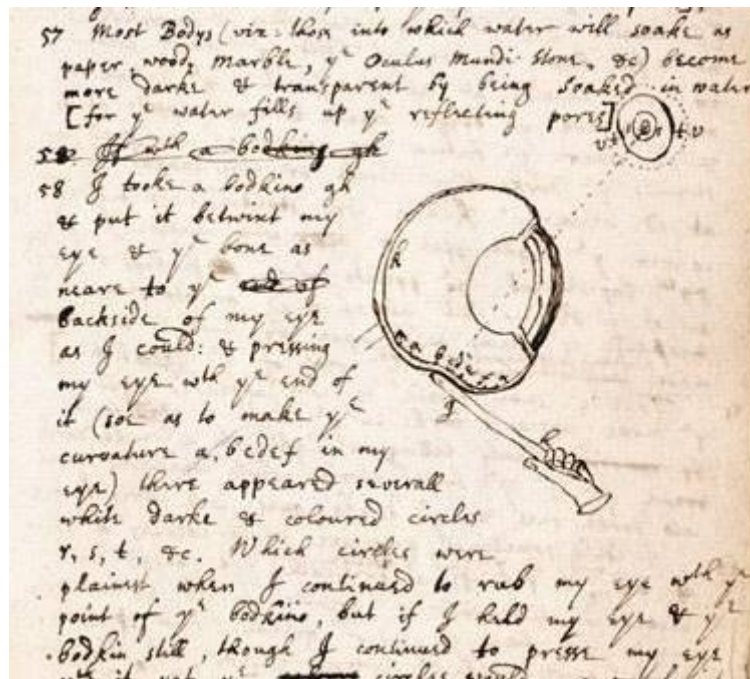 57 Most Bodys (viz: those into which water will soake as
paper, wood, Marble, yᵉ Oculus Mundi Stone, &c) become
more darke & transparent by being soaked in water
[for yᵉ water fills up yᵉ reflecting pores]
58 If wᵗʰ a bodking gh
58 I tooke a bodkine gh
& put it betwixt my
eye & yᵉ bone as
neare to yᵉ end of
backside of my eye
as I could: & pressing
my eye wᵗʰ yᵉ end of
it (soe as to make yᵉ
curvature a, bcdef in my
eye) there appeared severall
white darke & coloured circles
r, s, t, &c. Which circles were
plainest when I continued to rub my eye wᵗʰ yᵉ
point of yᵉ bodkine, but if I held my eye & yᵉ
bodkin still, though I continued to presse my eye
wᵗʰ it yet yᵉ circles would